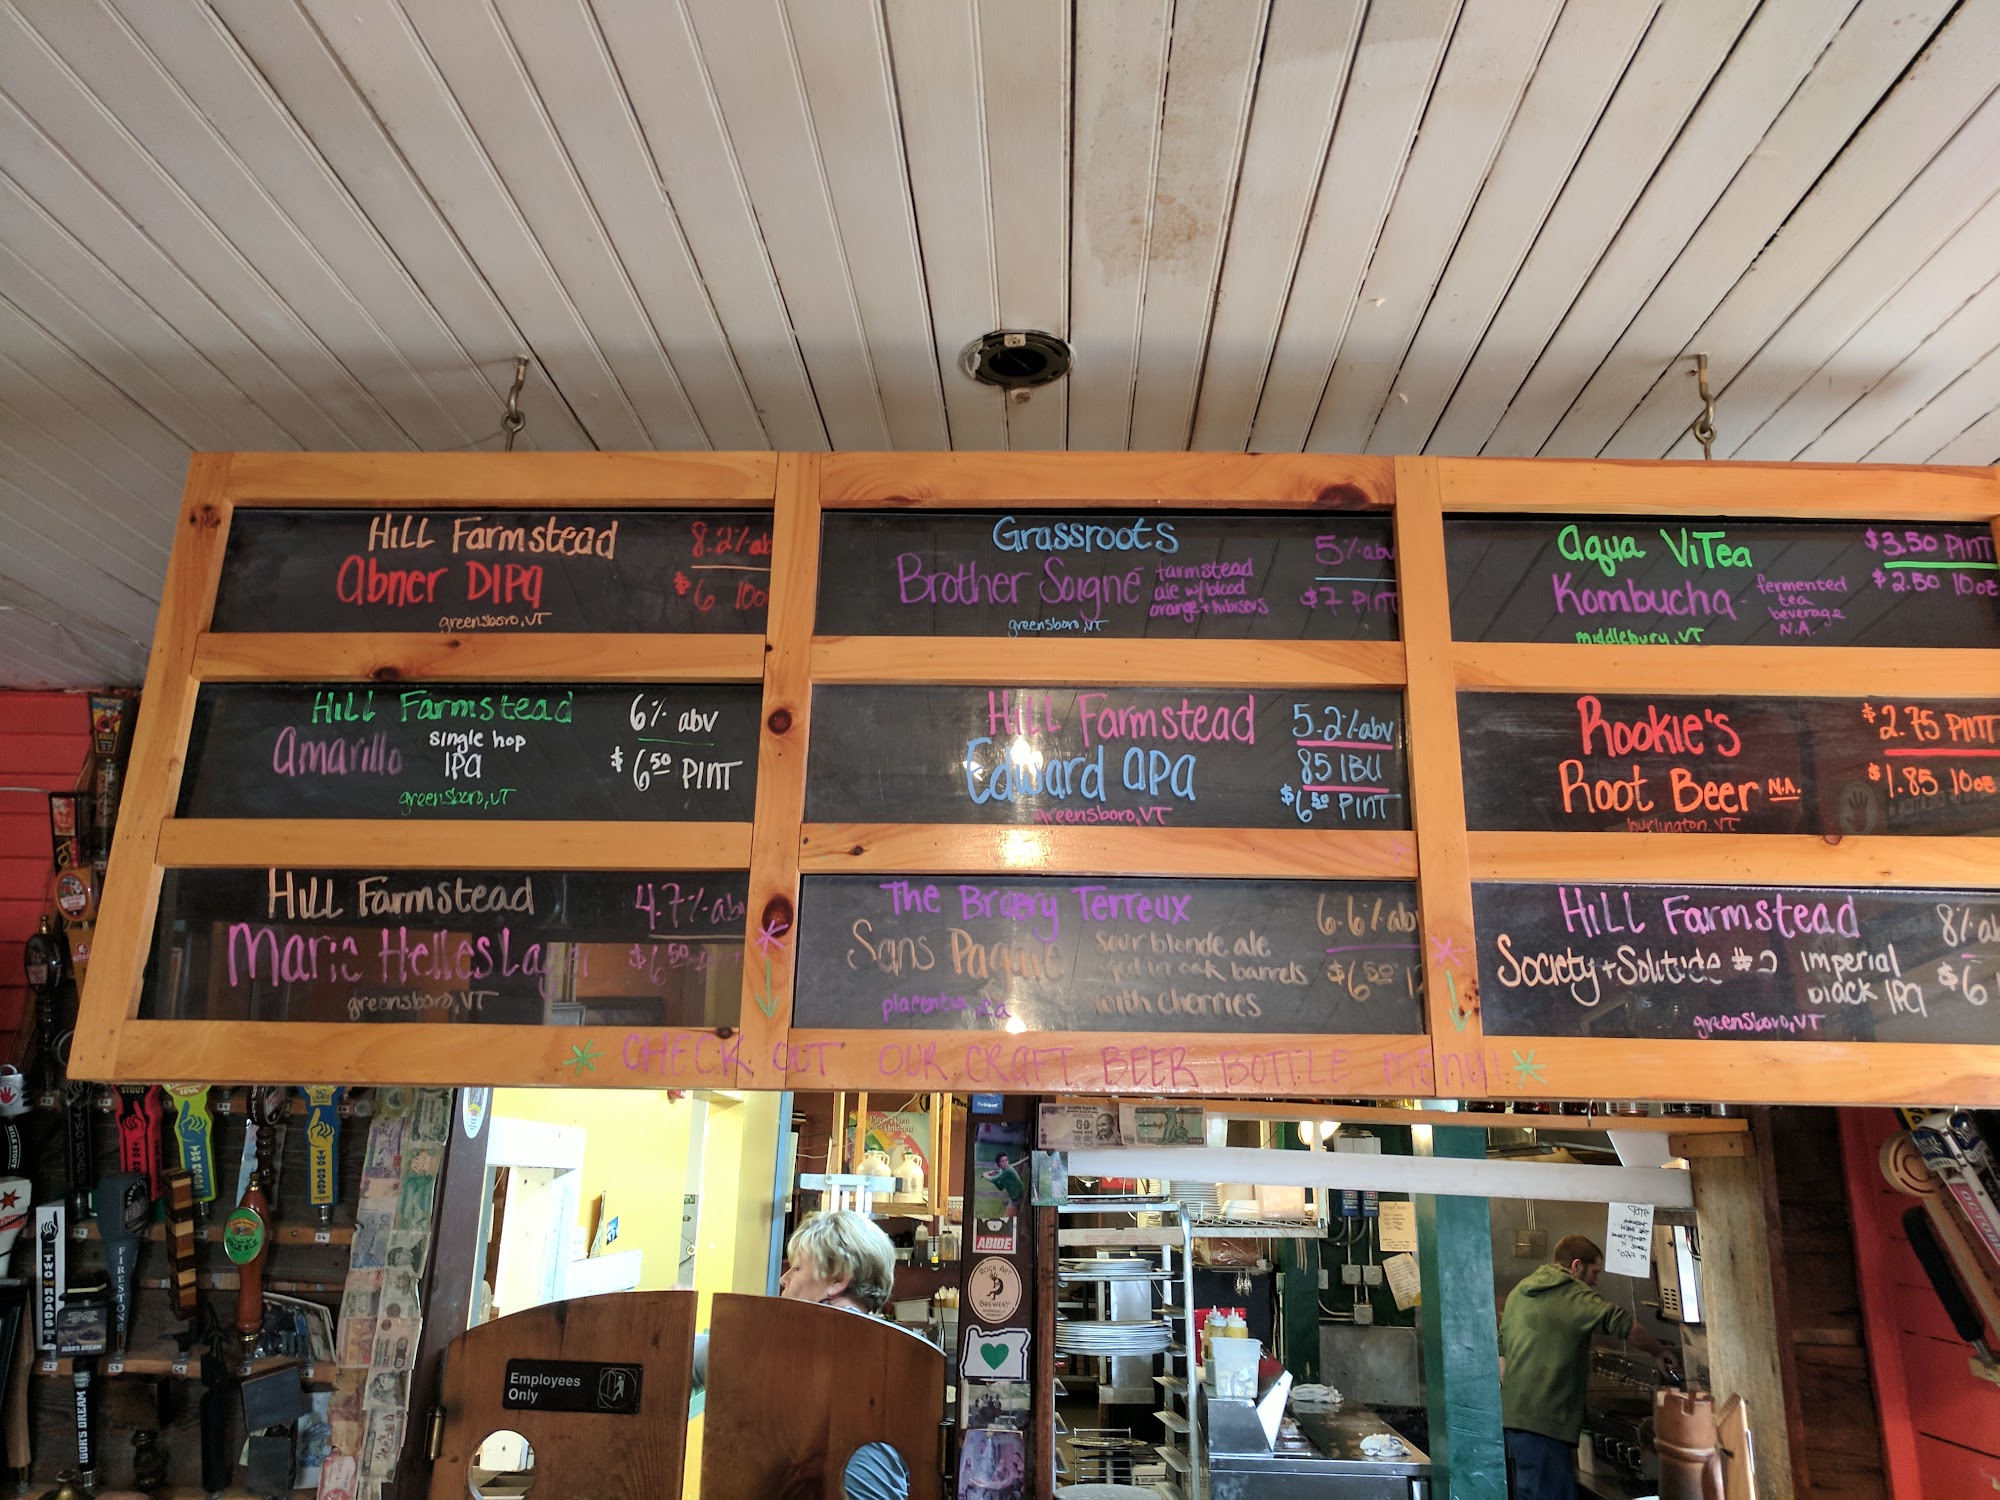 Hill Farmstead 8.2% ab
Abner DIPA $6 10o
greensboro, VT
Hill Farmstead 6% abv
Amarillo single hop IPA $6.50 PINT
greensboro, VT
Hill Farmstead 4.7% ab
Marie Helles Lager $6.50
greensboro, VT
Grassroots 5% abv
Brother Soigné farmstead
ale w/ blood
orange + hibiscus $7 PINT
greensboro, VT
Hill Farmstead 5.2% abv
Edward APA 85 IBU
$6.50 PINT
greensboro, VT
The Bruery Terreux 6.6% ab
Sans Pagaie sour blonde ale
aged in oak barrels $6.50 12
with cherries
placentia, ca
Aqua ViTea $3.50 PINT
Kombucha - fermented $2.50 10oz
tea
beverage
N.A.
middlebury, VT
Rookie's $2.75 PINT
Root Beer N.A. $1.85 10oz
burlington, VT
Hill Farmstead 8% ab
Society + Solitude #2 imperial
black IPA $6
greensboro, VT
* CHECK OUT OUR CRAFT BEER BOTTLE MENU! *
Employees
Only
ABIDE
ROCK ART
BREWERY
TWO ROADS
TWO ROADS
TWO ROADS
FIRESTONE
IGOR'S DREAM
IGOR'S DREAM
MILK STOUT
STOUT
PALE ALE
50